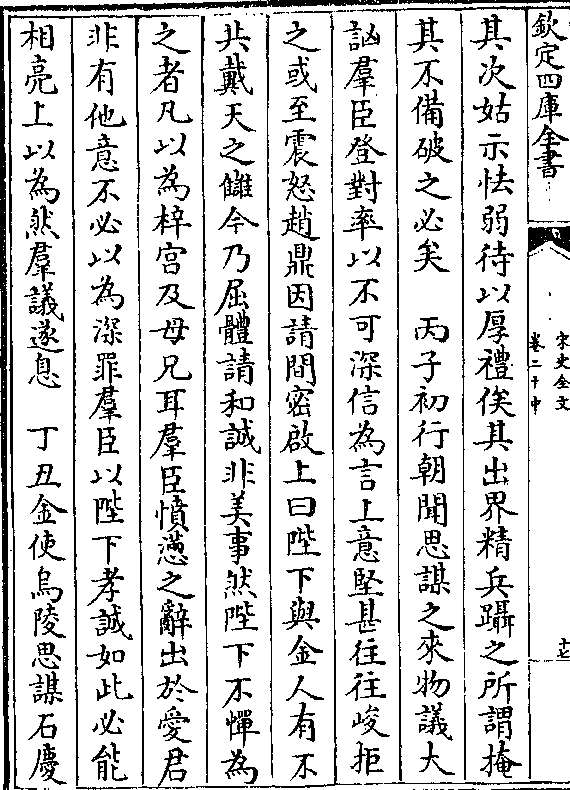 欽定四庫全書
宋史全文
卷二十中
其次姑示怯弱待以厚禮俟其出界精兵躡之所謂掩
其不備破之必矣　丙子初行朝聞思謀之來物議大
訩羣臣登對率以不可深信為言上意堅甚往往峻拒
之或至震怒趙鼎因請間密啟上曰陛下與金人有不
共戴天之讎今乃屈體請和誠非美事然陛下不憚為
之者凡以為梓宮及母兄耳羣臣憤懣之辭出於愛君
非有他意不必以為深罪羣臣以陛下孝誠如此必能
相亮上以為然羣議遂息　丁丑金使烏陵思謀石慶